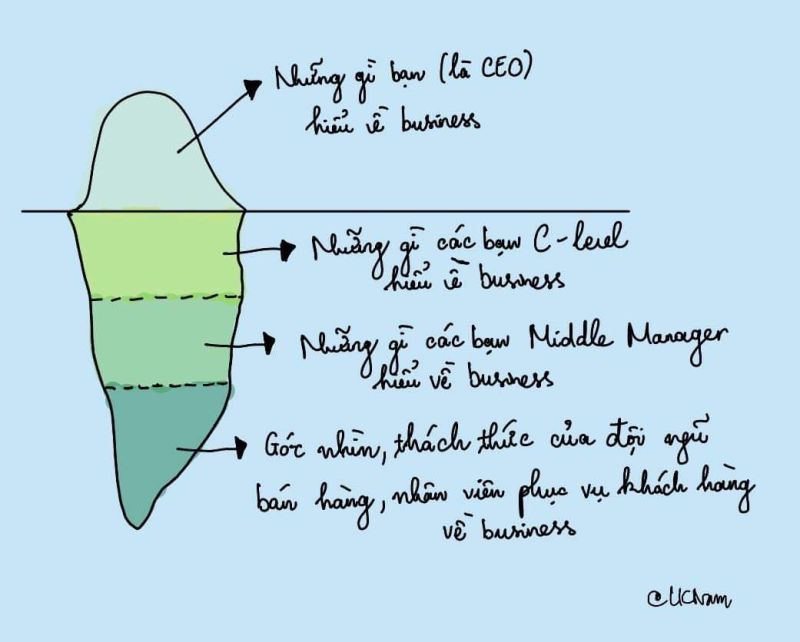 Những gì bạn (là CEO)
hiểu về business
Những gì các bạn C-level
hiểu về business
Những gì các bạn Middle Manager
hiểu về business
Góc nhìn, thách thức của đội ngũ
bán hàng, nhân viên phục vụ khách hàng
về business